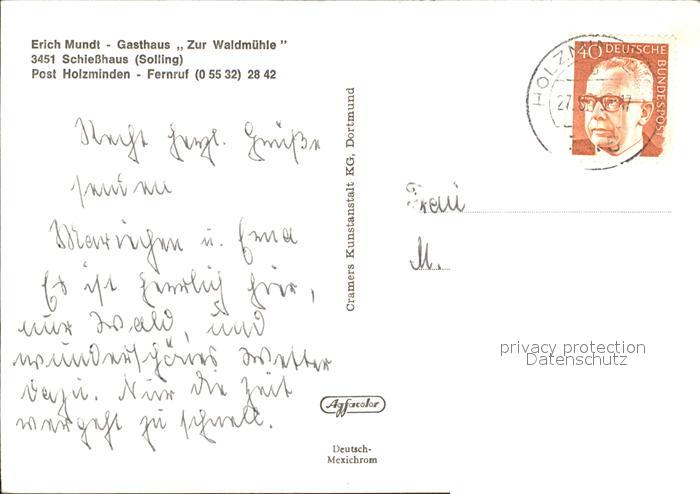 Erich Mundt - Gasthaus „Zur Waldmühle"
3451 Schießhaus (Solling)
Post Holzminden - Fernruf (0 55 32) 28 42
40 DEUTSCHE BUNDESPOST
HOLZMIN
27.
Recht herzl. Grüße
senden
Mariechen u. Erna
Es ist herrlich hier,
nur Wald, und
wunderschönes Wetter
dazu. Nur die Zeit
vergeht zu schnell.
Cramers Kunstanstalt KG, Dortmund
Frau
M.
privacy protection
Datenschutz
Agfacolor
Deutsch-
Mexichrom